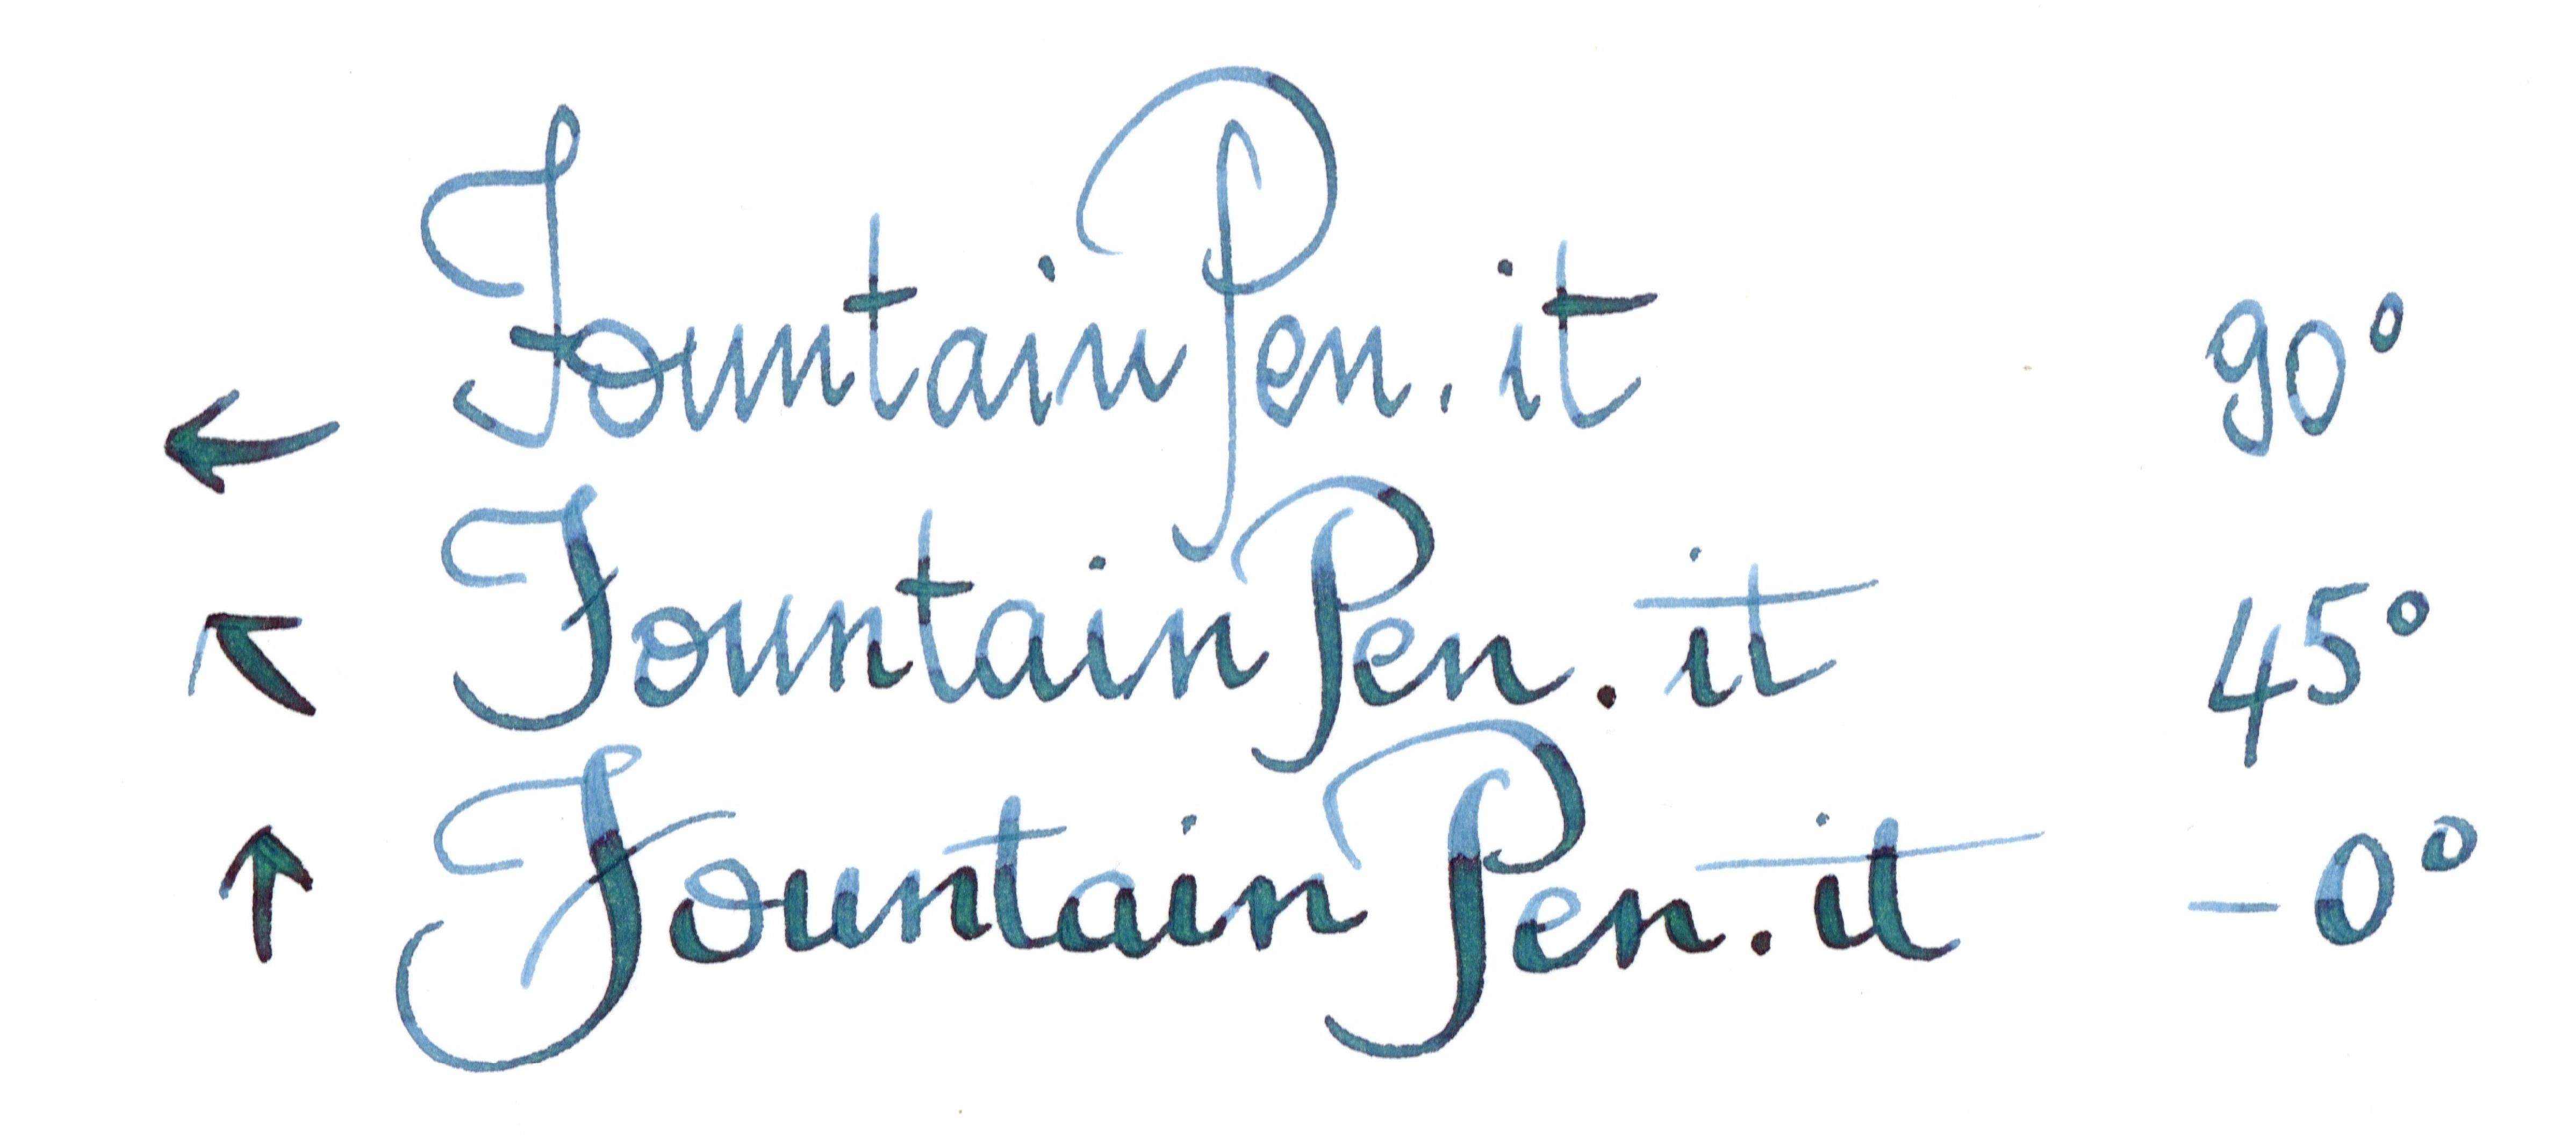 ← FountainPen.it 90°
↖ FountainPen.it 45°
↑ FountainPen.it -0°